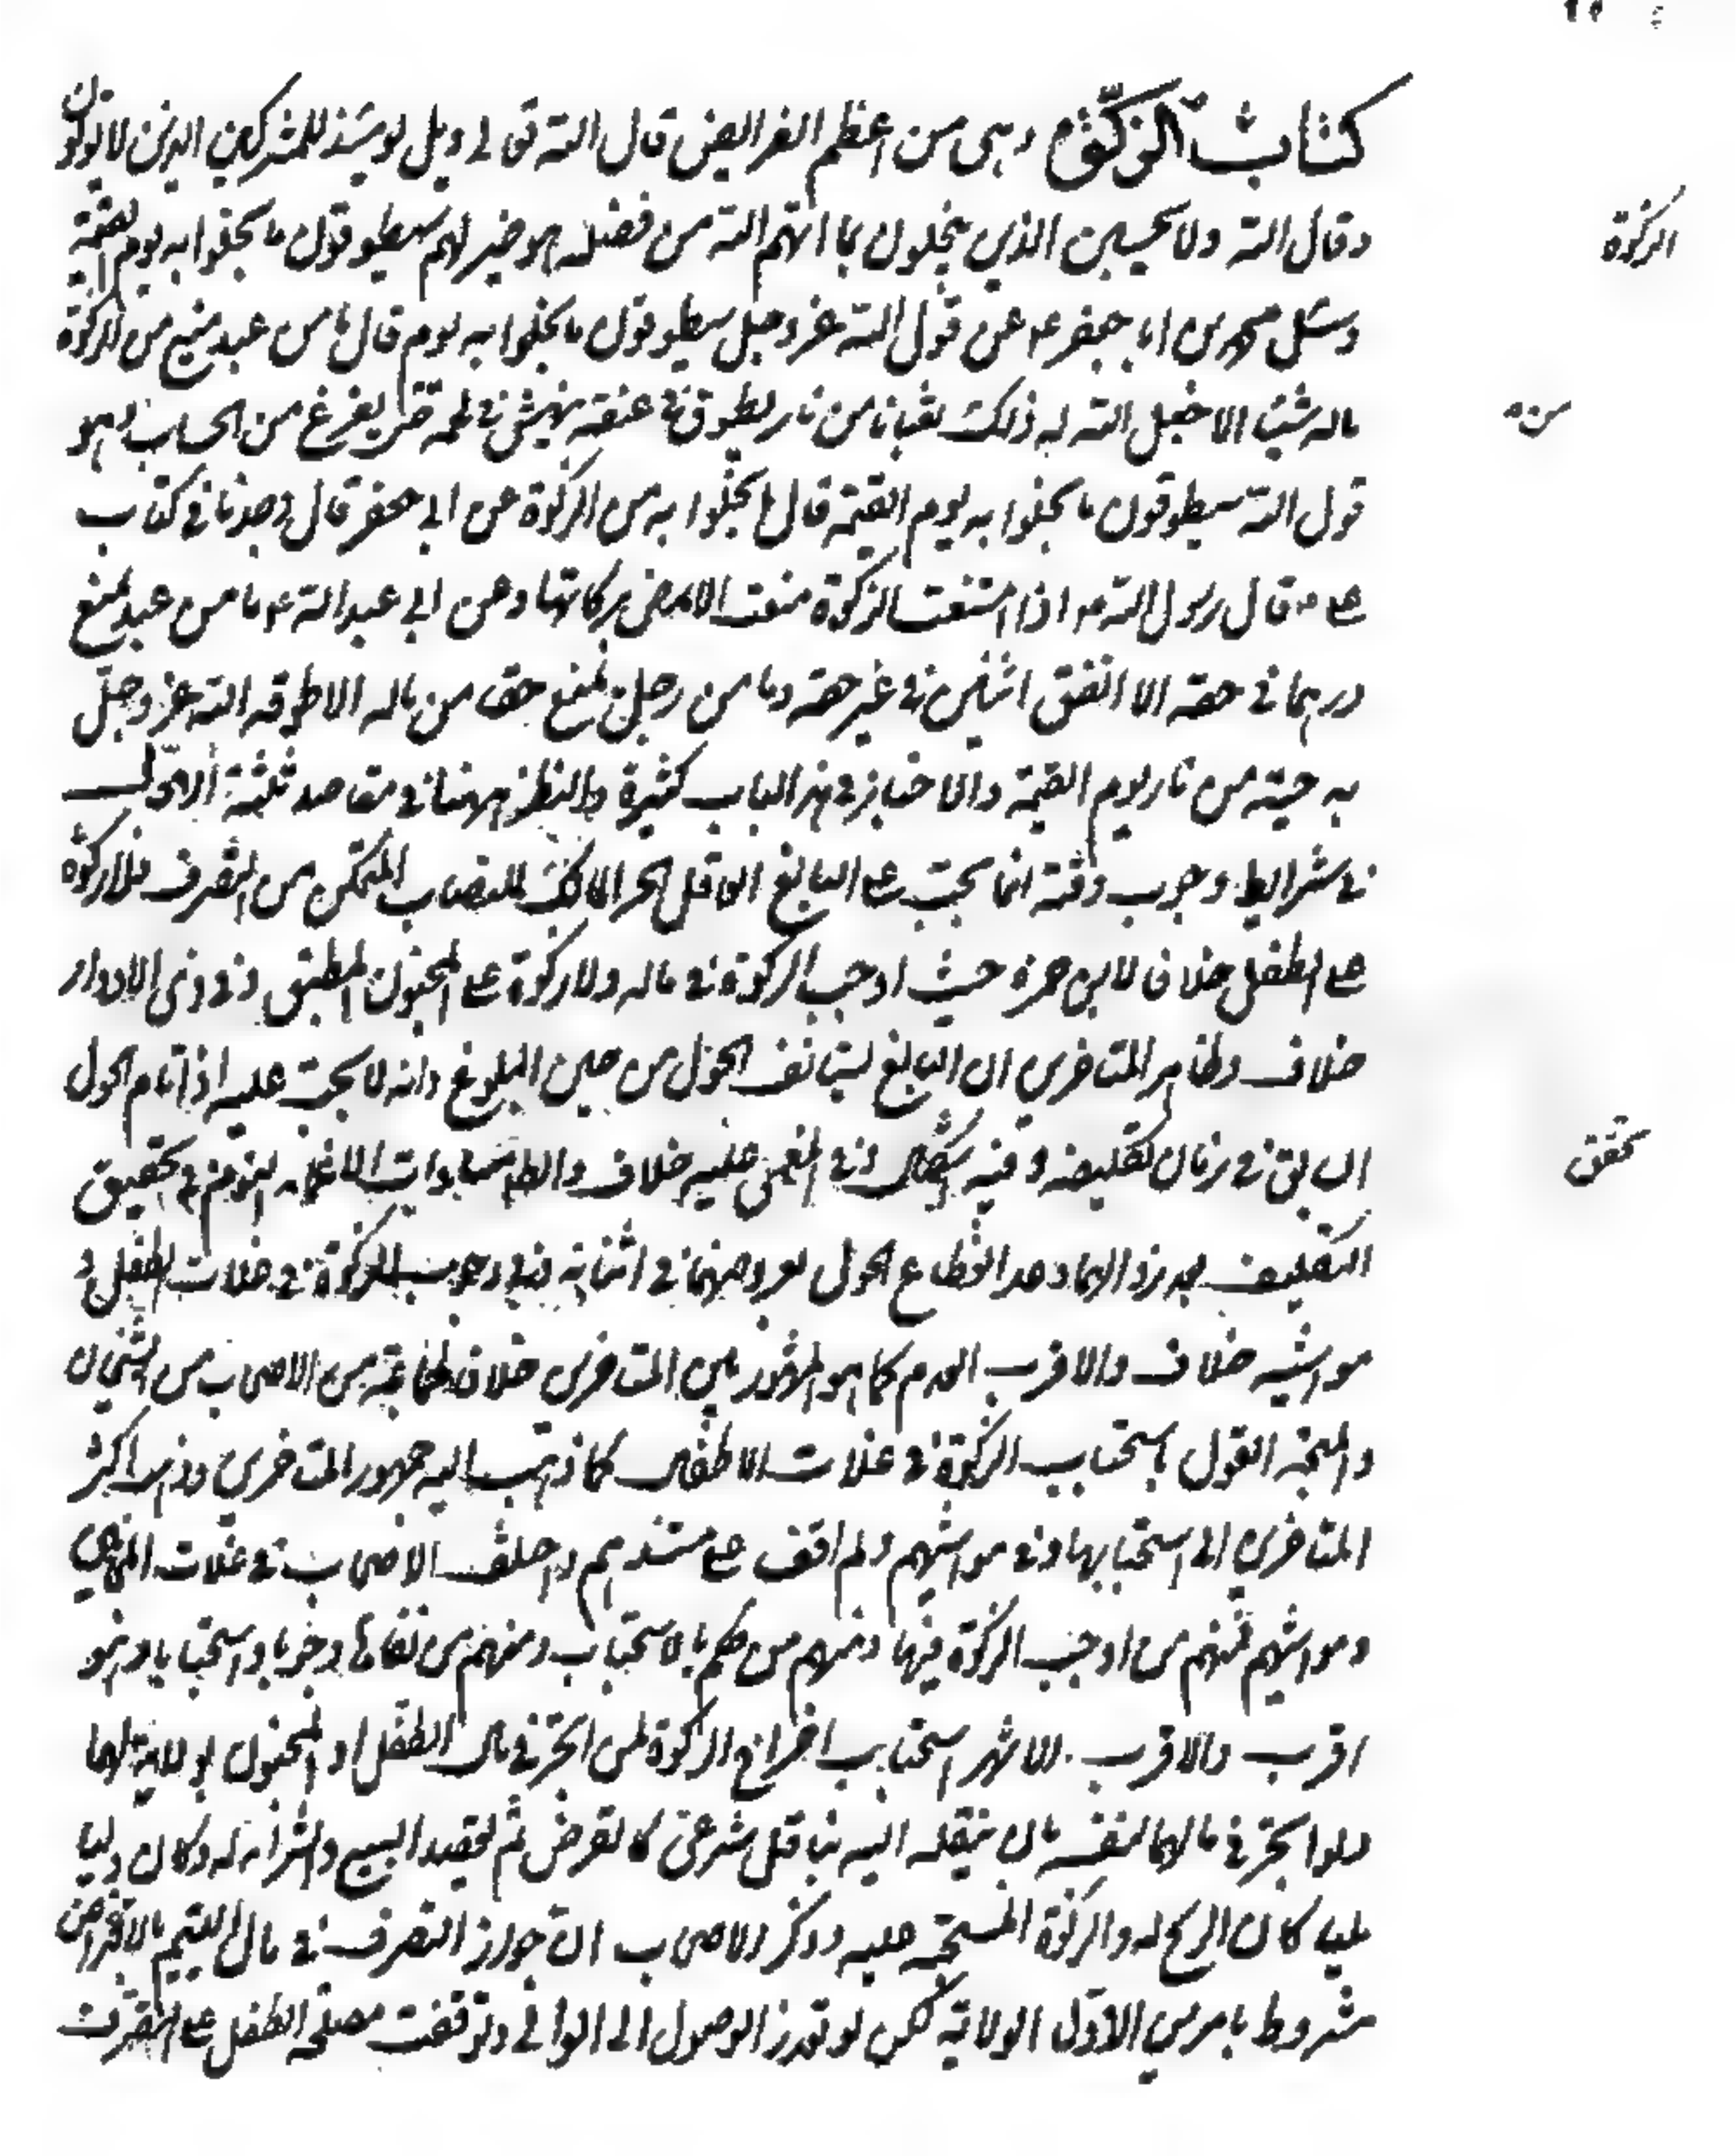 كتاب الزكوة وهى من اعظم الفرايض قال الله تعالى وويل يومئذ للمشركين الذين لا يؤتون
الزكوة
وقال الله ولا يحسبن الذين يبخلون بما اتهم الله من فضله هو خير لهم سيطوقون ما بخلوا به يوم القيمة
وسئل محمد بن ابا جعفر ع عن قول الله عز وجل سيطوقون ما بخلوا به يوم قال ما من عبد منع من الزكوة
ماله شيئا الا جعل الله له ذلك ثعبانا من نار يطوق في عنقه ينهش في لحمه حتى يفرغ من الحساب وهو
من
قول الله سيطوقون ما بخلوا به يوم القيمة قال ما بخلوا به من الزكوة عن ابي جعفر قال وجدنا في كتاب
على ع قال رسول الله ص اذا منعت الزكوة منعت الارض بركاتها وعن ابي عبد الله ع ما من عبد يمنع
درهما في حقه الا انفق اثنين في غير حقه وما من رجل يمنع حقا من ماله الا طوقه الله عز وجل
به حية من نار يوم القيمة والاخبار في هذا الباب كثيرة والنظر ههنا في مقاصد ثلثة الاول
في شرايط وجوب وقته انما يجب على البالغ العاقل الحر المالك للنصاب المتمكن من التصرف فلا زكوة
على الطفل خلافا لابن حمزة حيث اوجب الزكوة في ماله ولا زكوة على المجنون المطبق وفي ذي الادوار
خلاف وظاهر المتاخرين ان البالغ يستانف الحول من حين البلوغ وانه لا يجب عليه اذا تمام الحول
ان بقى في زمان تكليفه وفيه اشكال وفي المغمى عليه خلاف والظاهر مساوات الاغماء للنوم في تحقيق
تحقق
التكليف بعد زوالهما وعدم انقطاع الحول بعروضهما في اثنائه وفي وجوب الزكوة في غلات الطفل و
مواشيه خلاف والاقرب العدم كما هو المشهور بين المتاخرين خلافا لجماعة من الاصحاب من الشيخان
والمتجه القول باستحباب الزكوة في غلات الاطفال كما ذهب اليه جمهور المتاخرين وذهب اكثر
المتاخرين الى استحبابها في مواشيهم ولم اقف على مستندهم واختلف الاصحاب في غلات المجانين
ومواشيهم فمنهم من اوجب الزكوة فيها ومنهم من حكم بالاستحباب ومنهم من نفاها وجوبا واستحبابا وهو
اقرب والاقرب الاشهر استحباب اخراج الزكوة لمن اتجر في مال الطفل او المجنون بولاية لهما
ولو اتجر في مالهما لنفسه بان ينقله اليه بناقل شرعي كالقرض ثم يقصد البيع والشراء له وكان وليا
مليا كان الربح له والزكوة المستحبه عليه وذكر الاصحاب ان جواز التصرف في مال اليتيم بالاقتراض
مشروط بامرين الاول الولاية لكن لو تعذر الوصول الى الولي وتوقفت مصلحة الطفل على التصرف